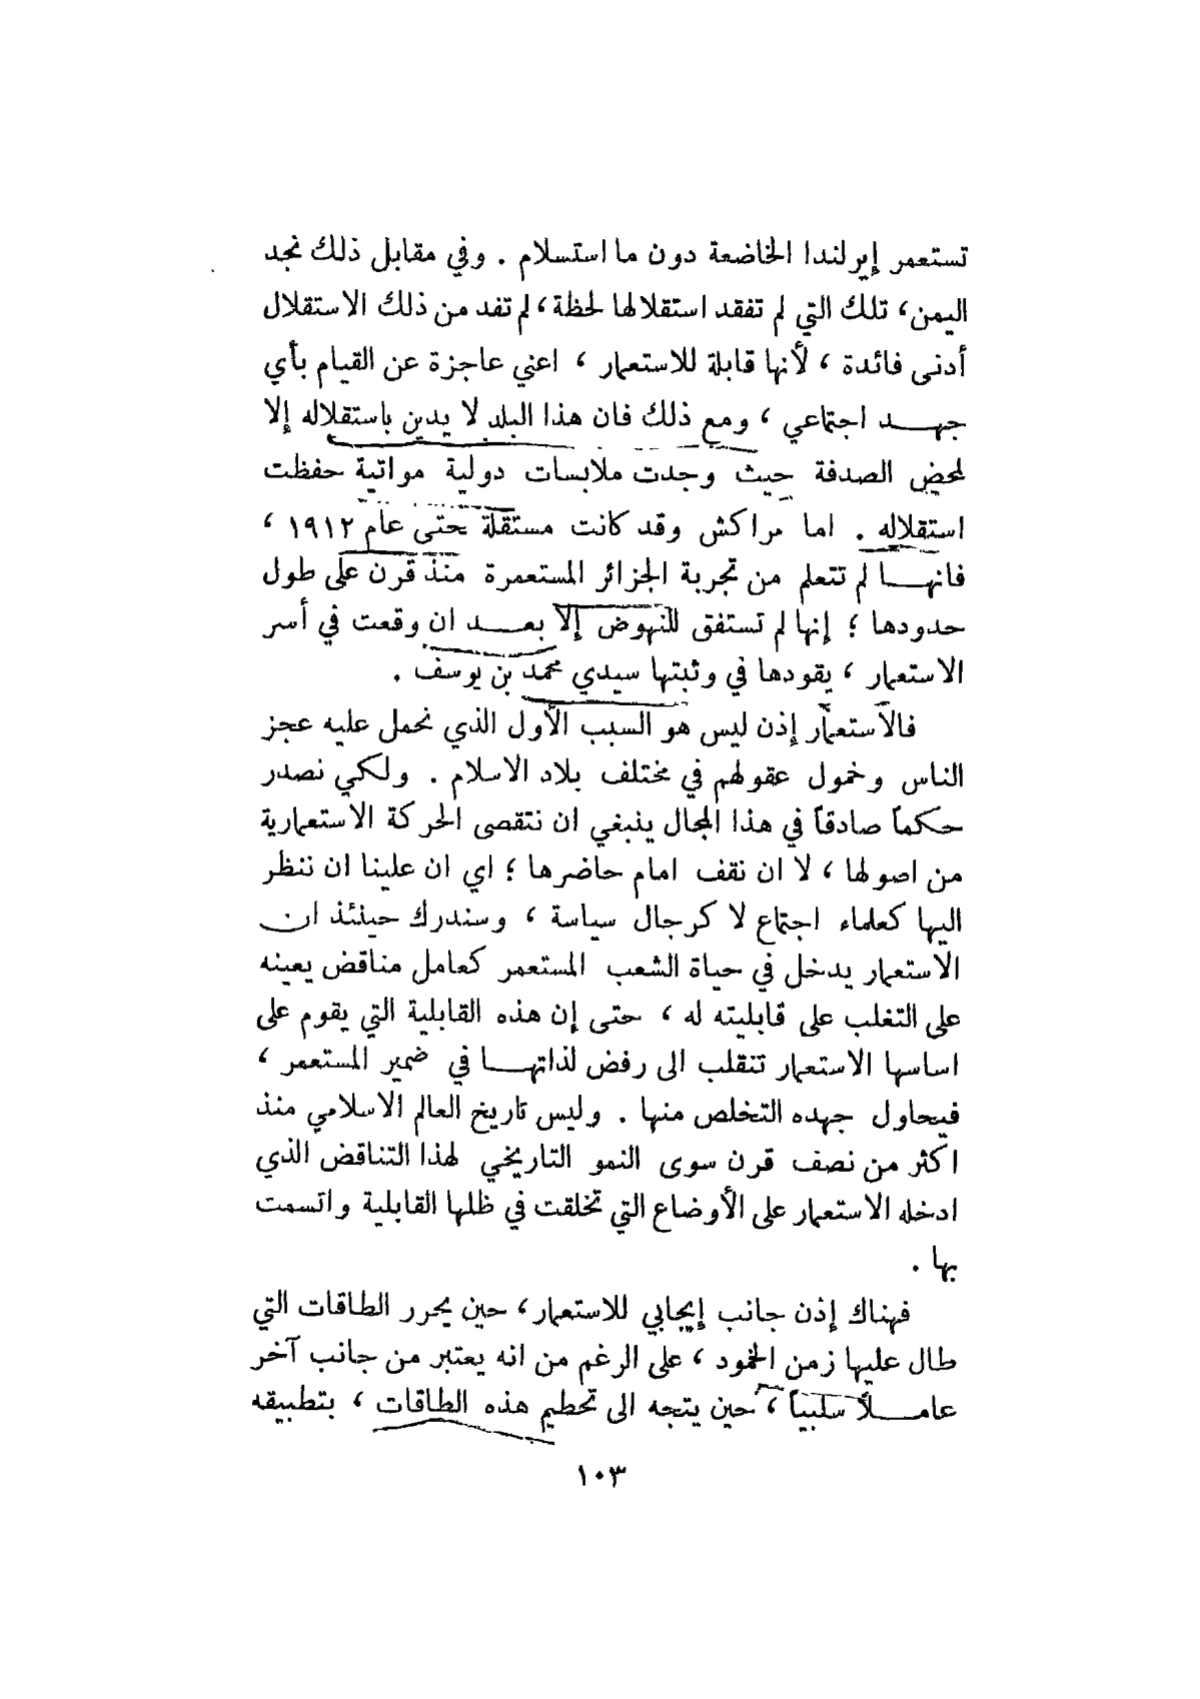 تستعمر إيرلندا الخاضعة دون ما استسلام . وفي مقابل ذلك نجد
اليمن، تلك التي لم تفقد استقلالها لحظة، لم تفد من ذلك الاستقلال
أدنى فائدة ، لأنها قابلة للاستعمار ، اعني عاجزة عن القيام بأي
جهــد اجتماعي ، ومع ذلك فان هذا البلد لا يدين باستقلاله إلا
لمحض الصدفة حيث وجدت ملابسات دولية مواتية حفظت
استقلاله . اما مراكش وقد كانت مستقلة حتى عام ١٩١٢ ،
فانهــا لم تتعلم من تجربة الجزائر المستعمرة منذ قرن على طول
حدودها ؛ إنها لم تستفق للنهوض إلا بعــد ان وقعت في أسر
الاستعمار ، يقودها في وثبتها سيدي محمد بن يوسف .
فالاستعمار إذن ليس هو السبب الأول الذي نحمل عليه عجز
الناس وخمول عقولهم في مختلف بلاد الاسلام . ولكي نصدر
حكماً صادقاً في هذا المجال ينبغي ان نتقصى الحركة الاستعمارية
من اصولها ، لا ان نقف امام حاضرها ؛ اي ان علينا ان ننظر
اليها كعلماء اجتماع لا كرجال سياسة ، وسندرك حينئذ ان
الاستعمار يدخل في حياة الشعب المستعمر كعامل مناقض يعينه
على التغلب على قابليته له ، حتى إن هذه القابلية التي يقوم على
اساسها الاستعمار تنقلب الى رفض لذاتهــا في ضمير المستعمر ،
فيحاول جهده التخلص منها . وليس تاريخ العالم الاسلامي منذ
اكثر من نصف قرن سوى النمو التاريخي لهذا التناقض الذي
ادخله الاستعمار على الأوضاع التي تخلقت في ظلها القابلية واتسمت
بها .
فهناك إذن جانب إيجابي للاستعمار، حين يحرر الطاقات التي
طال عليها زمن الخمود ، على الرغم من انه يعتبر من جانب آخر
عامــلاً سلبياً ، حين يتجه الى تحطيم هذه الطاقات ، بتطبيقه
١٠٣